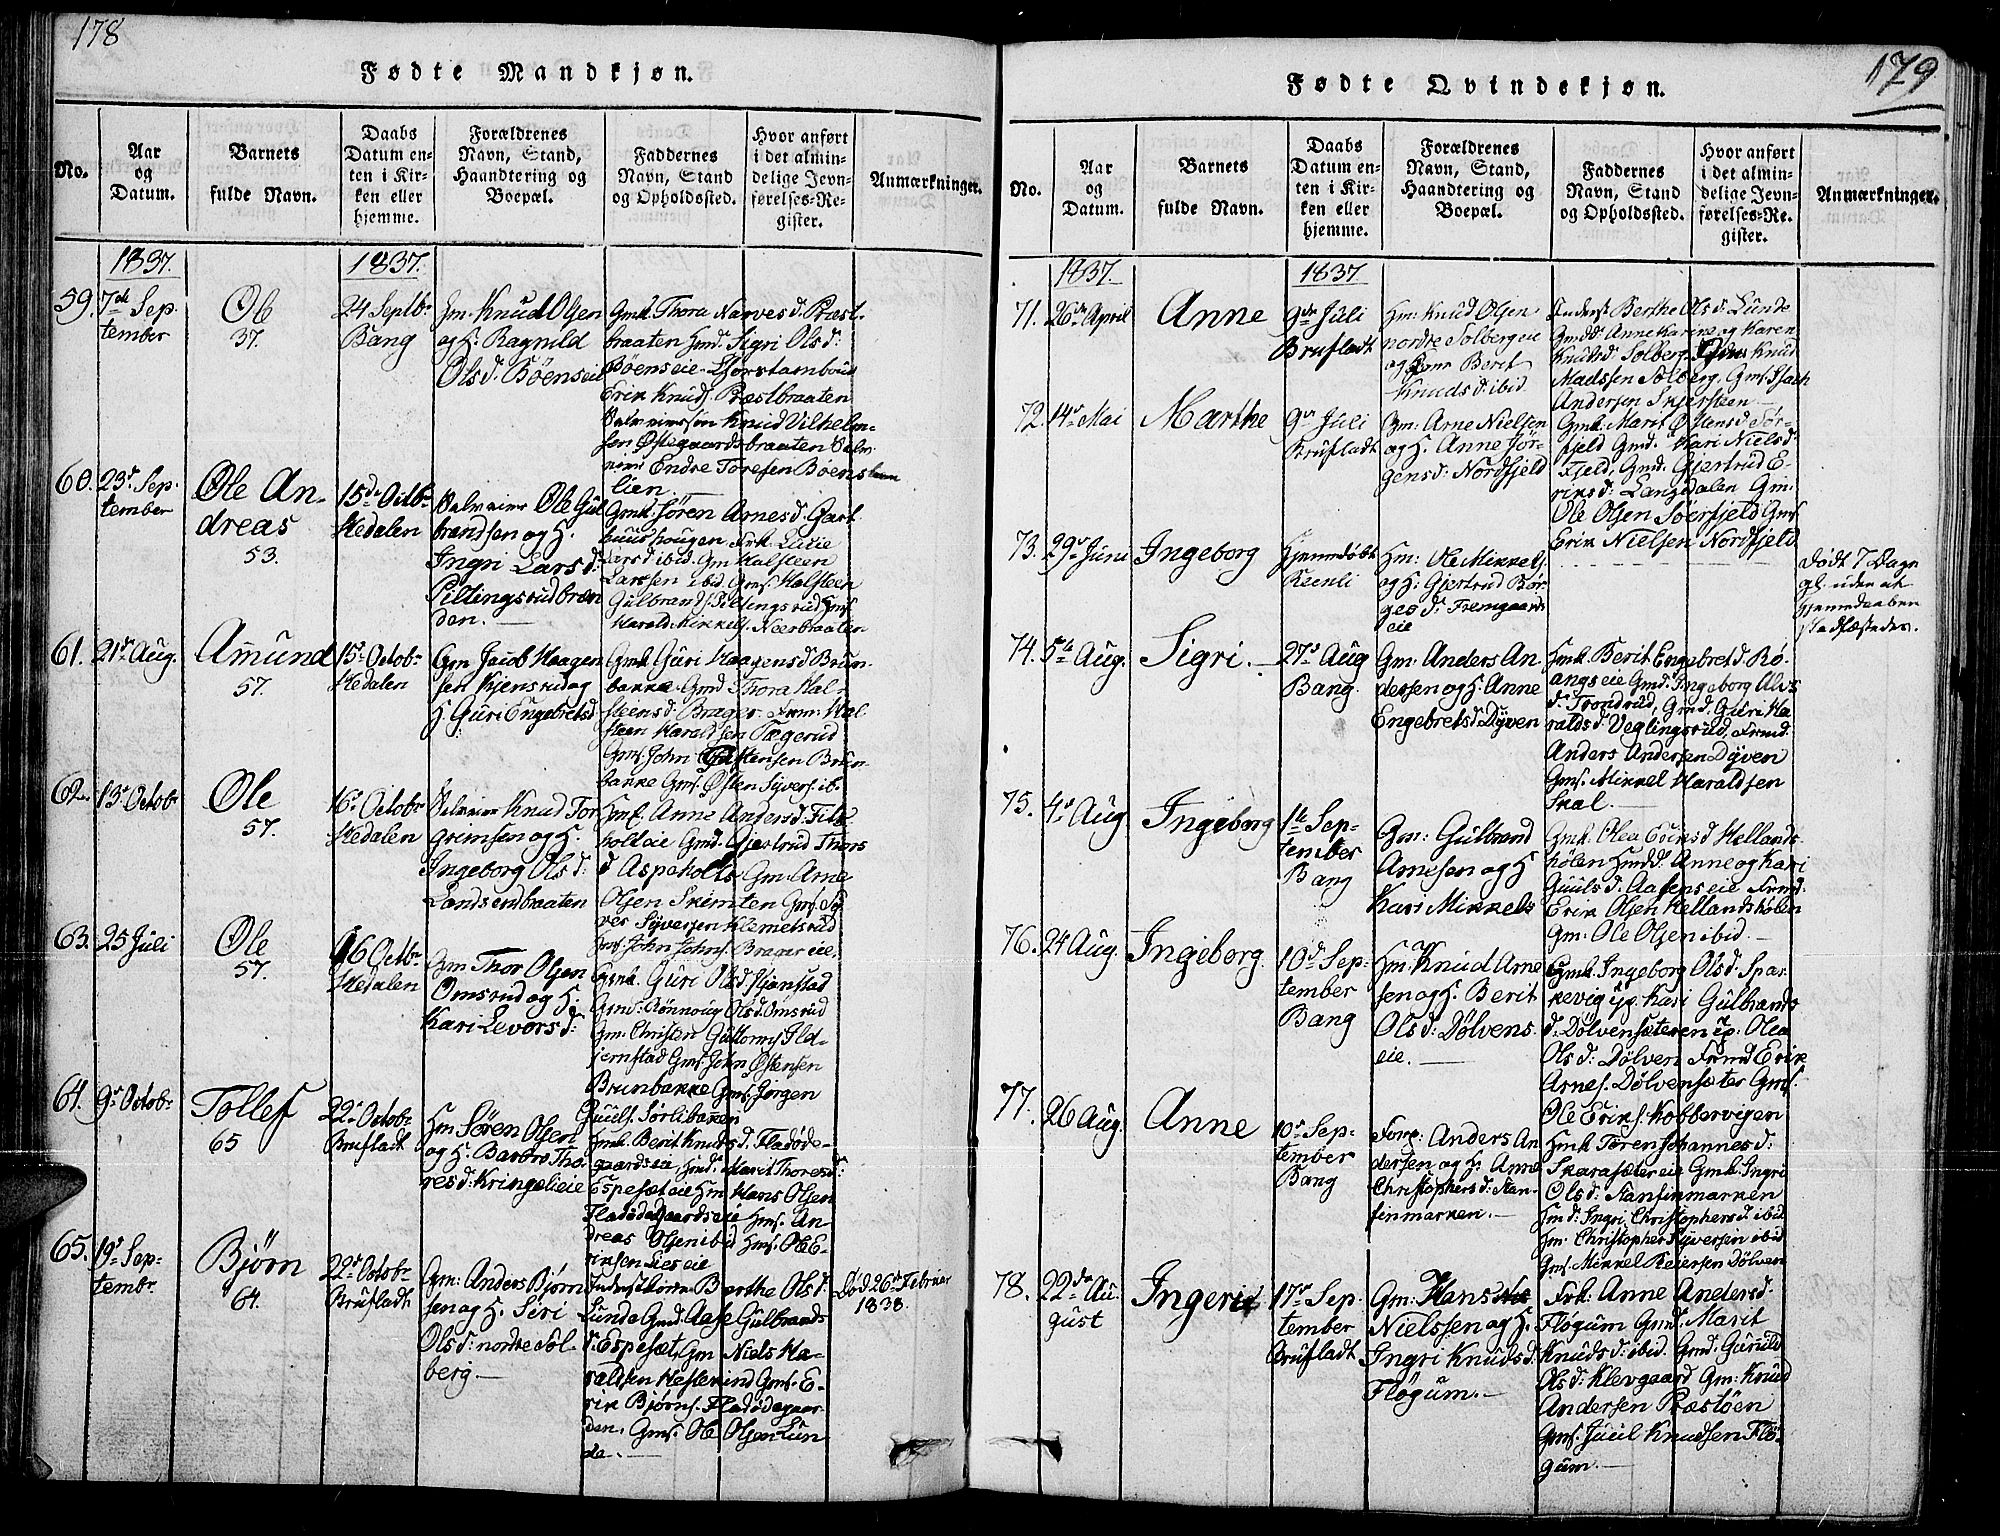 178
Fødte Mandkjøn.
No.
Aar
og
Datum.
Barnets
fulde Navn.
Daabs
Datum en-
ten i Kir-
ken eller
hjemme.
Forældrenes
Navn, Stand,
Haandtering og
Boepæl.
Faddernes
Navn, Stand
og Opholdssted.
Hvor anført
i det almin-
delige Jevn-
førelses-Re-
gister.
Anmærkninger.
1837.
1837.
59.
7de Sep-
tember
Ole
37.
24 Septbr
Bang
Hm. Knud Olsen
og H. Ragnild
Olsd. Bøenseie
Gmk. Thora Narvesd. Præst-
braaten Hmd. Sigri Olsd:
Bøenseie
Erik Knuds. Præstbraaten
Knud Vilhelm-
sen Østegaardsbraaten
Endre Toresen Boens
lien.
60.
23de Sep-
tember
Ole An-
dreas
53.
15de Octbr
Hedalen
Ole Gul-
brandsen og H.
Ingri Larsd:
Piltingsrudbræn
den.
Gmk. Jøren Arnesd. Gart-
huushougen Frk. Lucie
Larsd ibid. Gm Halsteen
Larssen ibid. Gms. Halsteen
Gulbrands. Piltingsrud Hms.
Harald Mikkels. Neerbraaten
61.
21de Aug.
Amund
57.
15de Octobr
Hedalen
Gm Jacob Haagen
sen Kjensrud og
H. Guri Engebretsd
Gmk. Guri Haagensd. Brun-
bakke Gmd. Thora Hal-
steensd. Brager. Frm: Hal
steen Haraldsen Tægerud
Gms. John Østensen Brun-
bakke Gms. Østen Syvers. ib.
62.
13de Octobr
Ole
57.
16de Octobr
Hedalen
Knud Tor
grimsen og H.
Ingeborg Olsd:
Landsendbraaten
Hmk. Anne Andersd.
holt eie Gmd. Gjertrud Thors
d Aspeholt Gm. Arne
Olsen Skimten Gms. Sy
ver Syversen Klemetsrud
Hms. John Johns. Brager eie.
63.
25 Juli
Ole
57.
16 Octbr
Hedalen
Gm Thor Olsen
Omsrud og H.
Kari Levorsd:
Gmk. Guri Olsd. Hjemstad
Gmd. Rønnoug Olsd. Omsrud
Gm. Christen Guttorms. Ild-
jernstad Gms. John Østensen
Brunbakke Gms. Jørgen
Juuls. Sørlibakken
64.
9de Octobr
Tollef
65
22de Octobr
Brufladt
Hm Søren Olsen
og H. Barbro Tho-
resd. Kringelieie
Hmk. Berit Knudsd. Fladøde-
gaardseie, Hmd. Marit Thoresd:
Espesæteie Hm Hans Olsen
Fladødegaardseie Hms. An
dreas Olsen ibid Hms. Ole E-
riksen Lieseie
65.
19de Sep-
tembr
Bjørn
64.
22de Octobr
Brufladt
Gm: Anders Bjørn
sen og H. Siri
Olsd: nordre Sol-
berg.
Berthe Olsd.
Lunde Gmd. Aase Gulbrands
d. Espesæt, Gm Niels Ha-
raldsen Hesterud Gms. E-
rik Bjørns. Fladødegaar-
den. Gms. Ole Olsen Lun
de.
Død 26de Februar
1838.
179
Fødte Qvindekjøn.
No.
Aar
og
Datum.
Barnets
fulde Navn.
Daabs
Datum en-
ten i Kir-
ken eller
hjemme.
Forældrenes
Navn, Stand,
Haandtering og
Boepæl.
Faddernes
Navn, Stand
og Opholdssted.
Hvor anført
i det almin-
delige Jevn-
førelses-Re-
gister.
Anmærkninger.
1837.
1837
71.
26de April
Anne
9de Juli
Brufladt
Hm: Knud Olsen
nordre Solbergeie
og Berit
Knudsd: ibid
Berthe Olsd. Lunde
Gmdd: Anne Karine og Karen
Knudsd: Solberg. Knud
Madssen Solberg. Gms. Isach
Andersen Skjersteen
72.
14de Mai
Marthe
9de Juli
Brufladt
Gm: Arne Nielsen
og H. Anne Jør-
gensd: Nordfjeld
Gmk: Marit Østensd Sør-
fjeld Gmd. Kari Nielsd:
Fjeld, Gmd. Gjertrud E-
riksd: Langedalen Gm:
Ole Olsen Søerfjeld Gms.
Erik Nielsen Nordfjeld
73.
29de Juni
Ingeborg
Hjemmedøbt
Reenli
Hm: Ole Mikkels.
og H: Gjertrud Bør-
gesd: Fremgaards
eie
Dødt 7 Dage
gl. uden at
Hjemmedaaben
stadfæstedes.
74.
5te Aug.
Sigri.
27de Aug
Bang.
Gm: Anders An-
derssen og H. Anne
Engebretsd Dyven
Hmk. Berit Engebretsd. Rø-
angseie Gmd. Ingeborg Alvs
d: Trondrud, Gmd. Guri Ha-
raldsd. Veglingsrud, Frmd.
Anders Andersen Dyven
Gms. Mikkel Haraldsen
Skal.
75.
4de Aug
Ingeborg
1te Sep-
tember
Bang
Gm: Gulbrand
Arnesen og H
Kari Mikkels
Gmk. Olea Eriksd Hellands-
hølen Hmdd. Anne og Kari
Guulsd. Aasenseie Frmd.
Erik Olsen Hellandshølen
Gm: Ole Olsen ibid.
76.
24 Aug.
Ingeborg.
10de Sep-
tember
Bang
Hm. Knud Arne
sen og H. Berit
Olsd: Dølvens-
eie.
Gmk. Ingeborg Olsd. Spar-
kevig Kari Gulbrands
d: Dølvensæteren Olea
Olsd: Dølven Frmd Erik
Arnes. Dølvensæter Gms.
Ole Eriks. Kobbervigen
77.
26 Aug.
Anne
10de Sep-
tember
Bang
Anders An
dersen og H. Anne
Christophersd:
finmarken.
Hmk Jøren Johannesd:
Skarasæter eie Gmk. Ingri
Olsd:
Hmd: Ingri Christophersd. ibid
Hm. Christopher Syversen ibid
Gms. Mikkel Reiersen Dølven
78.
22de Au-
gust
Ingerid
17de Sep-
tember
Brufladt
Gm: Hans
Nielssen og H.
Ingri Knudsd.
Fløgum.
Frk: Anne Andersd.
Fløgum Gmd. Marit
Knudsd: ibid. Gmd. Gunild
Olsd: Klevgaard Gm: Knud
Andersen Præstøen
Gms. Juul Knudsen Flø-
gum.